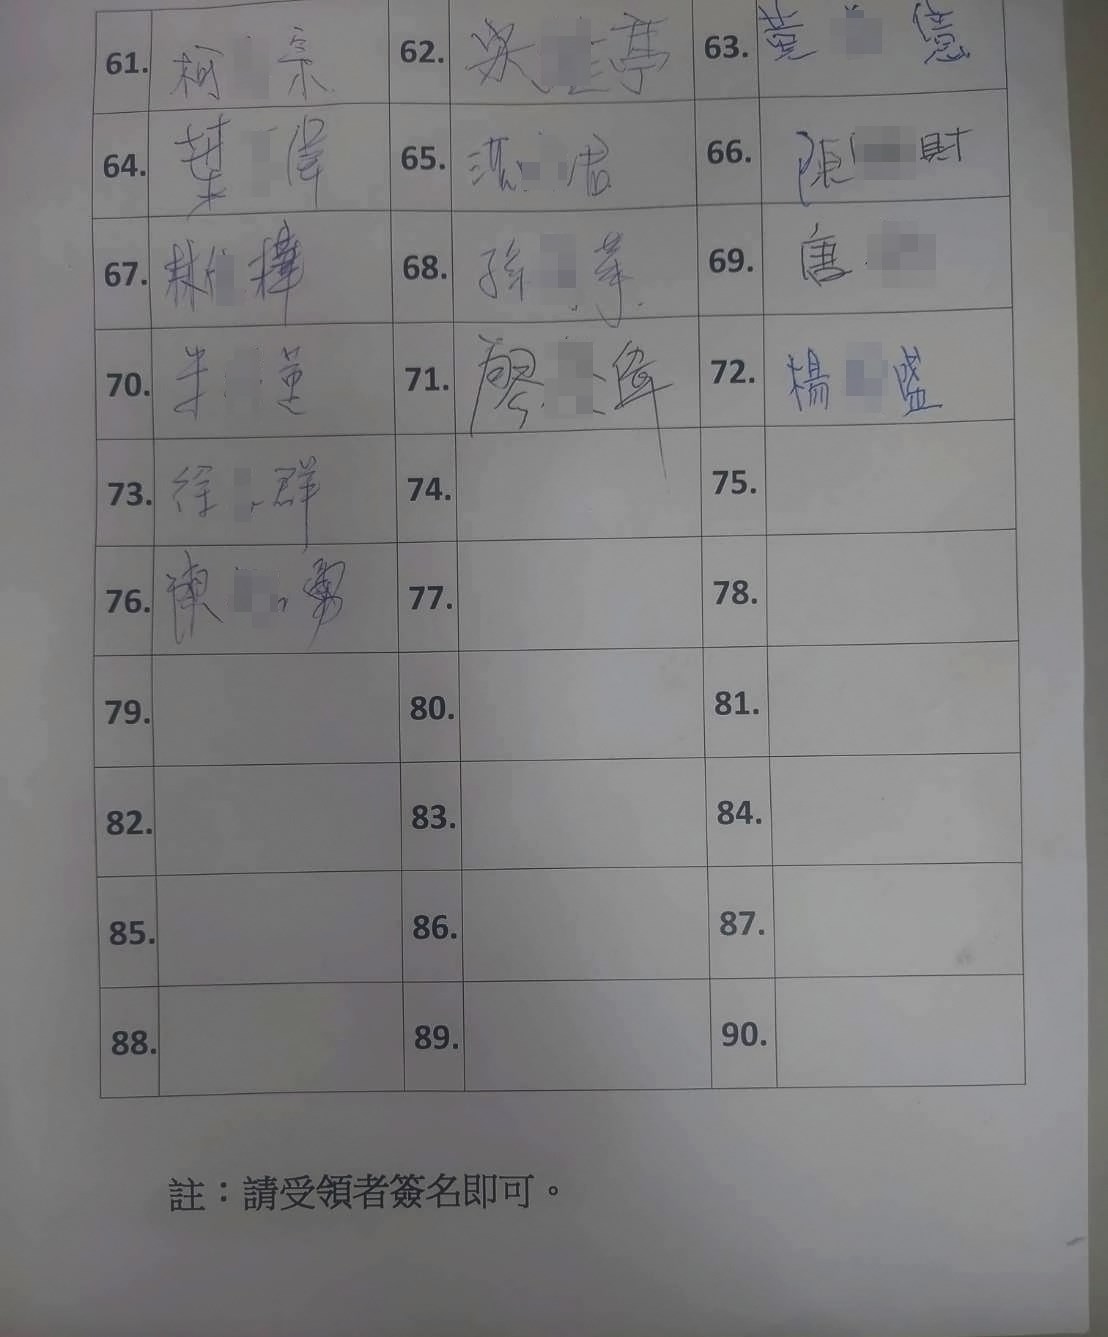 61. 柯 宗 62. 吳 亭 63. 黃 億
64. 葉 偉 65. 洪 君 66. 陳 財
67. 林 樺 68. 孫 69. 唐
70. 71. 廖 偉 72. 楊 盛
73. 徐 群 74. 75.
76. 陳 勇 77. 78.
79. 80. 81.
82. 83. 84.
85. 86. 87.
88. 89. 90.
註：請受領者簽名即可。